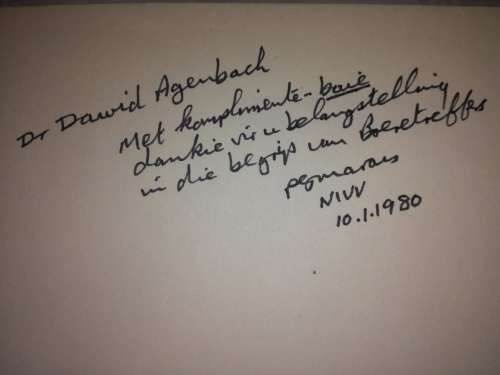 Dr Dawid Agenbach
Met komplimente - baie
dankie vir u belangstelling
in die begrip van Boeretreffes
pgmarais
NIVV
10.1.1980